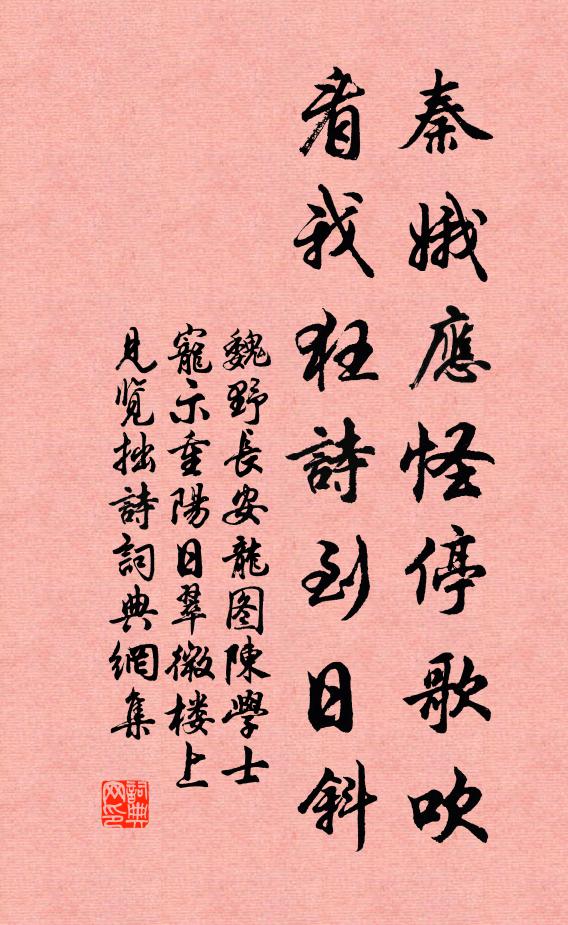 秦娥應怪停歌吹
看我狂詩到日斜
魏野長安龍图陳學士
寵示重陽日翠微楼上
見览拙詩詞典網集
詞典网印